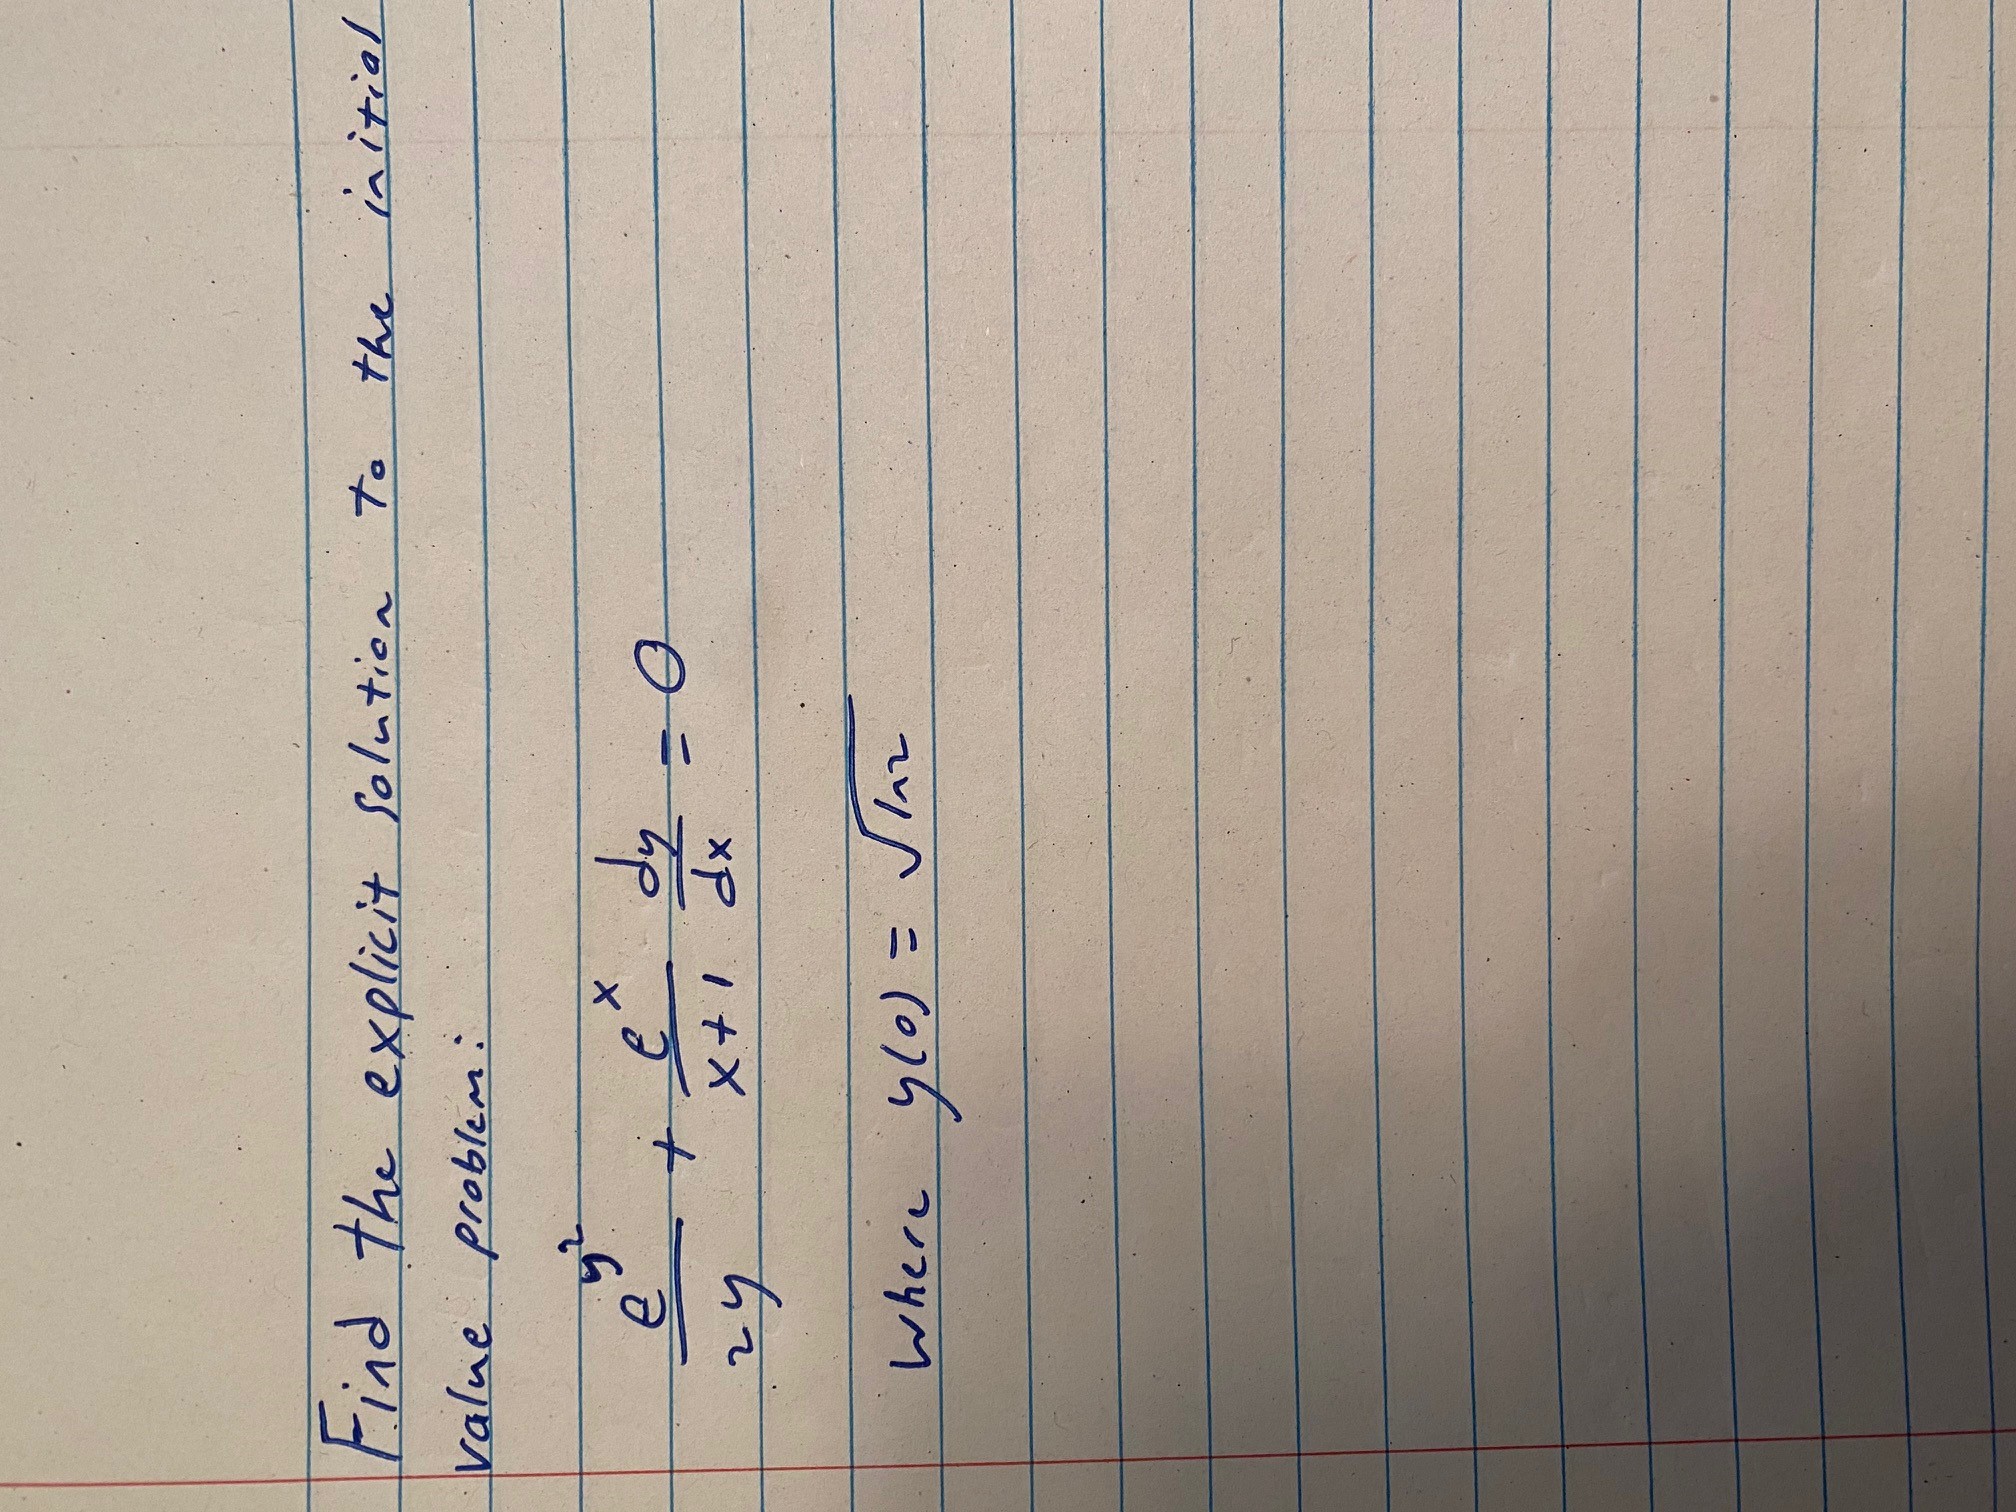 Find the explicit solution to the initial
value problem:
e^{y^2}/2y + e^x/x+1 dy/dx = 0
where y(0) = √ln2